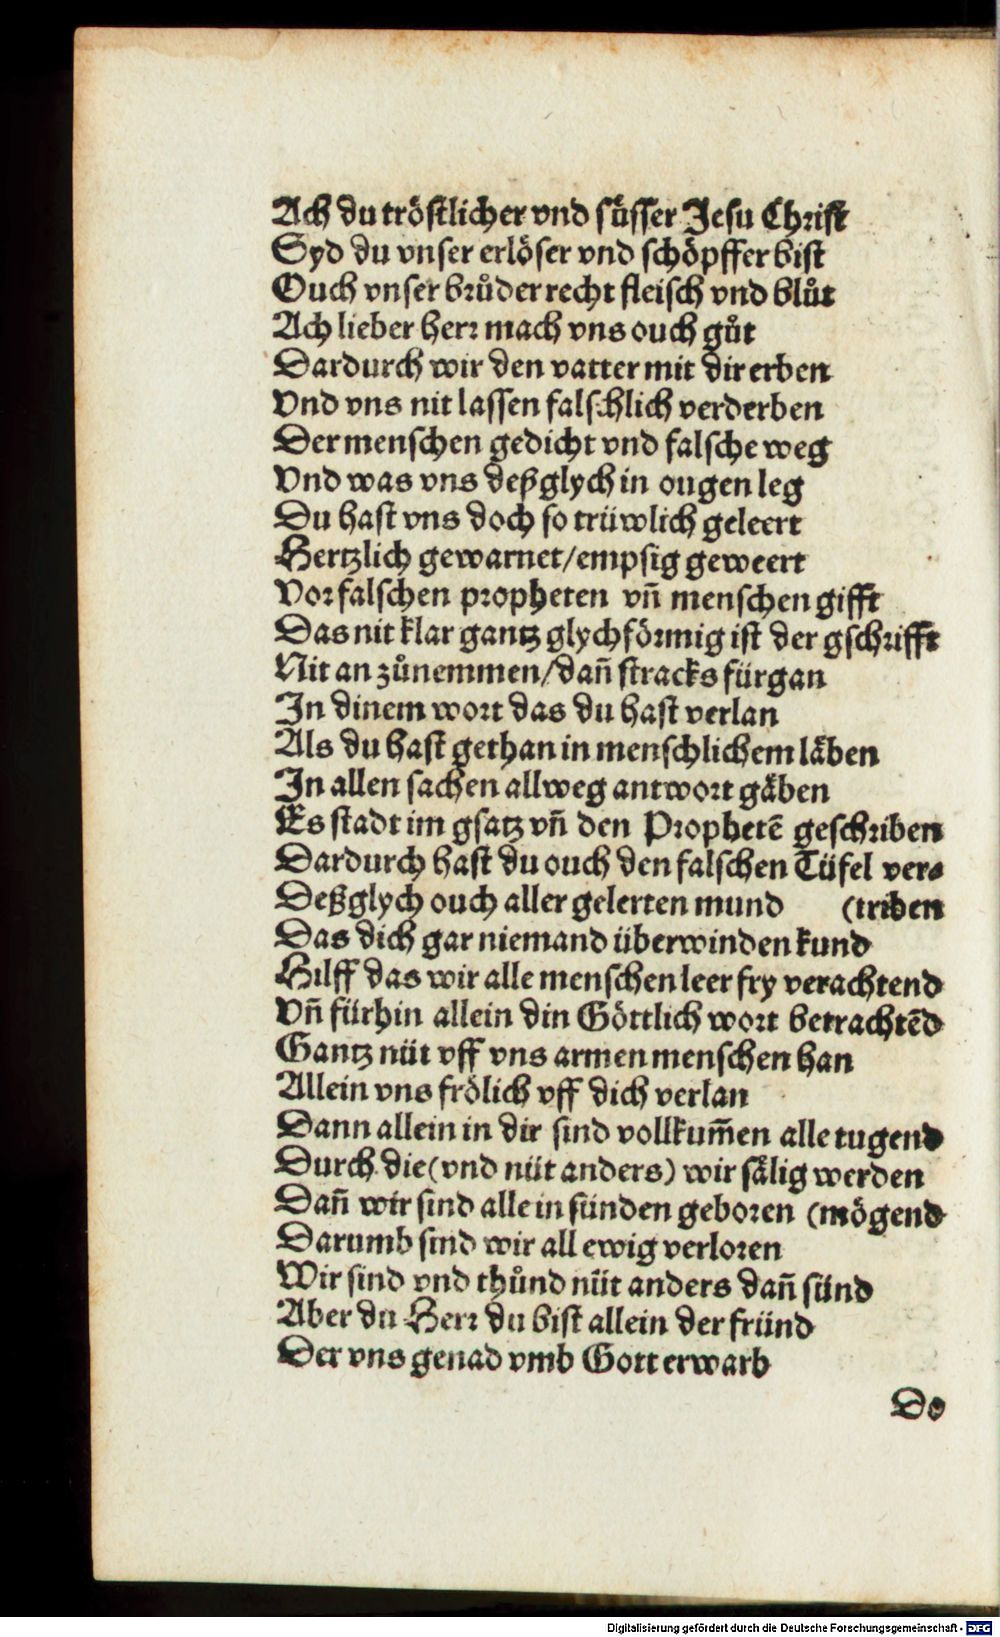 Ach du tröstlicher vnd süsser Jesu Christ
Syd du vnser erlöser vnd schöpffer bist
Ouch vnser brůder recht fleisch vnd blůt
Ach lieber herr mach vns ouch gůt
Dardurch wir den vatter mit dir erben
Vnd vns nit lassen falschlich verderben
Der menschen gedicht vnd falsche weg
Vnd was vns deßglych in ougen leg
Du hast vns doch so trüwlich geleert
Hertzlich gewarnet/empsig geweert
Vor falschen propheten vñ menschen gifft
Das nit klar gantz glychförmig ist der gschrifft
Nit an zůnemmen/dañ stracks fürgan
In dinem wort das du hast verlan
Als du hast gethan in menschlichem läben
In allen sachen allweg antwort gäben
Es stadt im gsatz vñ den Prophetē geschriben
Dardurch hast du ouch den falschen Tüfel ver-
Deßglych ouch aller gelerten mund (triben
Das dich gar niemand überwinden kund
Hilff das wir alle menschen leer fry verachtend
Vñ fürhin allein din Göttlich wort betrachtēd
Gantz nüt vff vns armen menschen han
Allein vns frölich vff dich verlan
Dann allein in dir sind vollkum̄en alle tugend
Durch die (vnd nüt anders) wir sälig werden
Dañ wir sind alle in sünden geboren (mögend
Darumb sind wir all ewig verloren
Wir sind vnd thůnd nüt anders dañ sünd
Aber du Herr du bist allein der fründ
Der vns genad vmb Gott erwarb
Do
Digitalisierung gefördert durch die Deutsche Forschungsgemeinschaft - DFG